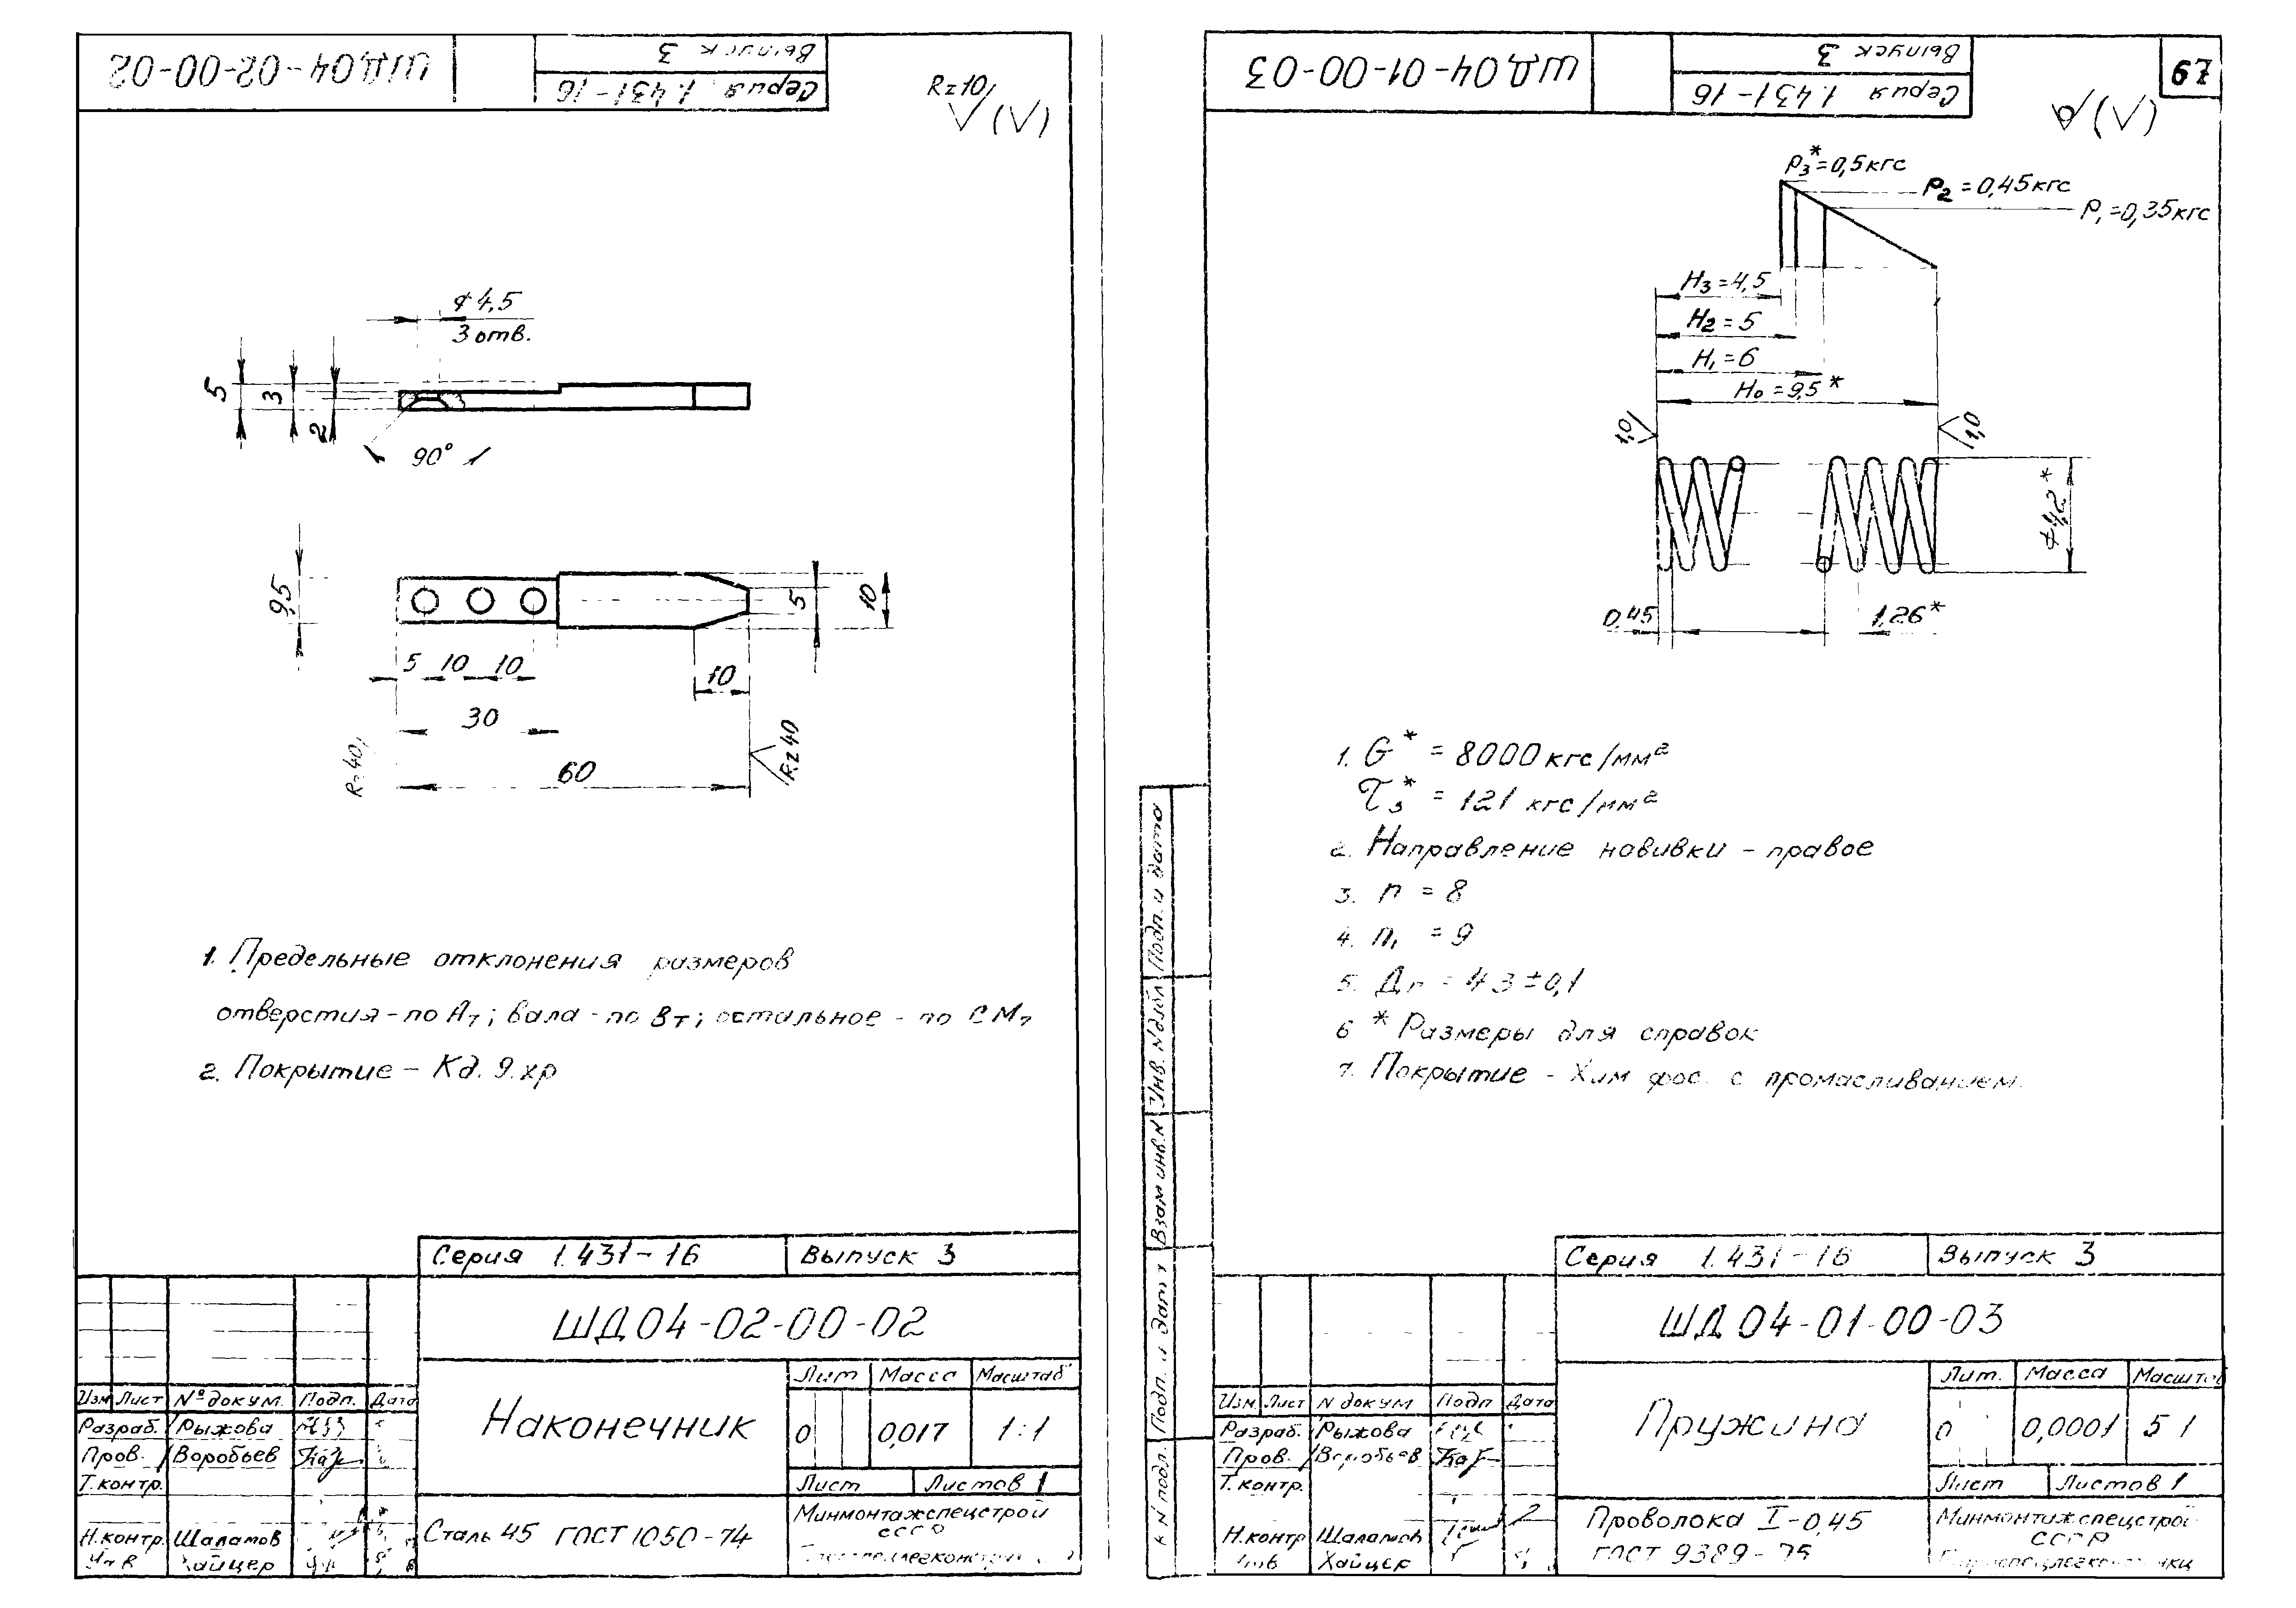 ШД04-02-00-02
Выпуск 3
Серия 1.431-16
Rz10
(√)
⌀4,5
3 отв.
5
3
2
90°
9,5
5
10
5 10 10
10
30
60
Rz40
Rz40
1. Предельные отклонения размеров
отверстия - по А7; вала - по В7; остальное - по СМ7
2. Покрытие - Кд. 9. хр
Серия 1.431-16
Выпуск 3
ШД04-02-00-02
Изм Лист № докум. Подп. Дата
Разраб. Рыжова
Пров. Воробьев
Т.контр.
Н.контр. Шалатов
Утв Хайцер
Наконечник
Лит Масса Масштаб
0 0,017 1:1
Лист Листов 1
Сталь 45 ГОСТ 1050-74
Минмонтажспецстрой
СССР
ШД04-01-00-03
Выпуск 3
Серия 1.431-16
67
(√)
P3*=0,5кгс
P2=0,45кгс
P1=0,35кгс
H3=4,5
H2=5
H1=6
H0=9,5*
1,0
1,0
⌀4,2*
0,45
1,26*
1. G* = 8000 кгс/мм²
τ3* = 121 кгс/мм²
2. Направление навивки - правое
3. n = 8
4. n1 = 9
5. Дг = 4,3±0,1
6 * Размеры для справок
7. Покрытие - Хим фос. с промасливанием.
Подп. и дата
Инв. N дубл
Взам инв.N
Подп. и дата
N подл.
Серия 1.431-16
Выпуск 3
ШД04-01-00-03
Изм. Лист N докум Подп Дата
Разраб. Рыжова
Пров. Воробьев
Т.контр.
Н.контр Шалатов
Утв Хайцер
Пружина
Лит. Масса Масштаб
0 0,0001 5 1
Лист Листов 1
Проволока I-0,45
ГОСТ 9389-75
Минмонтажспецстрой
СССР